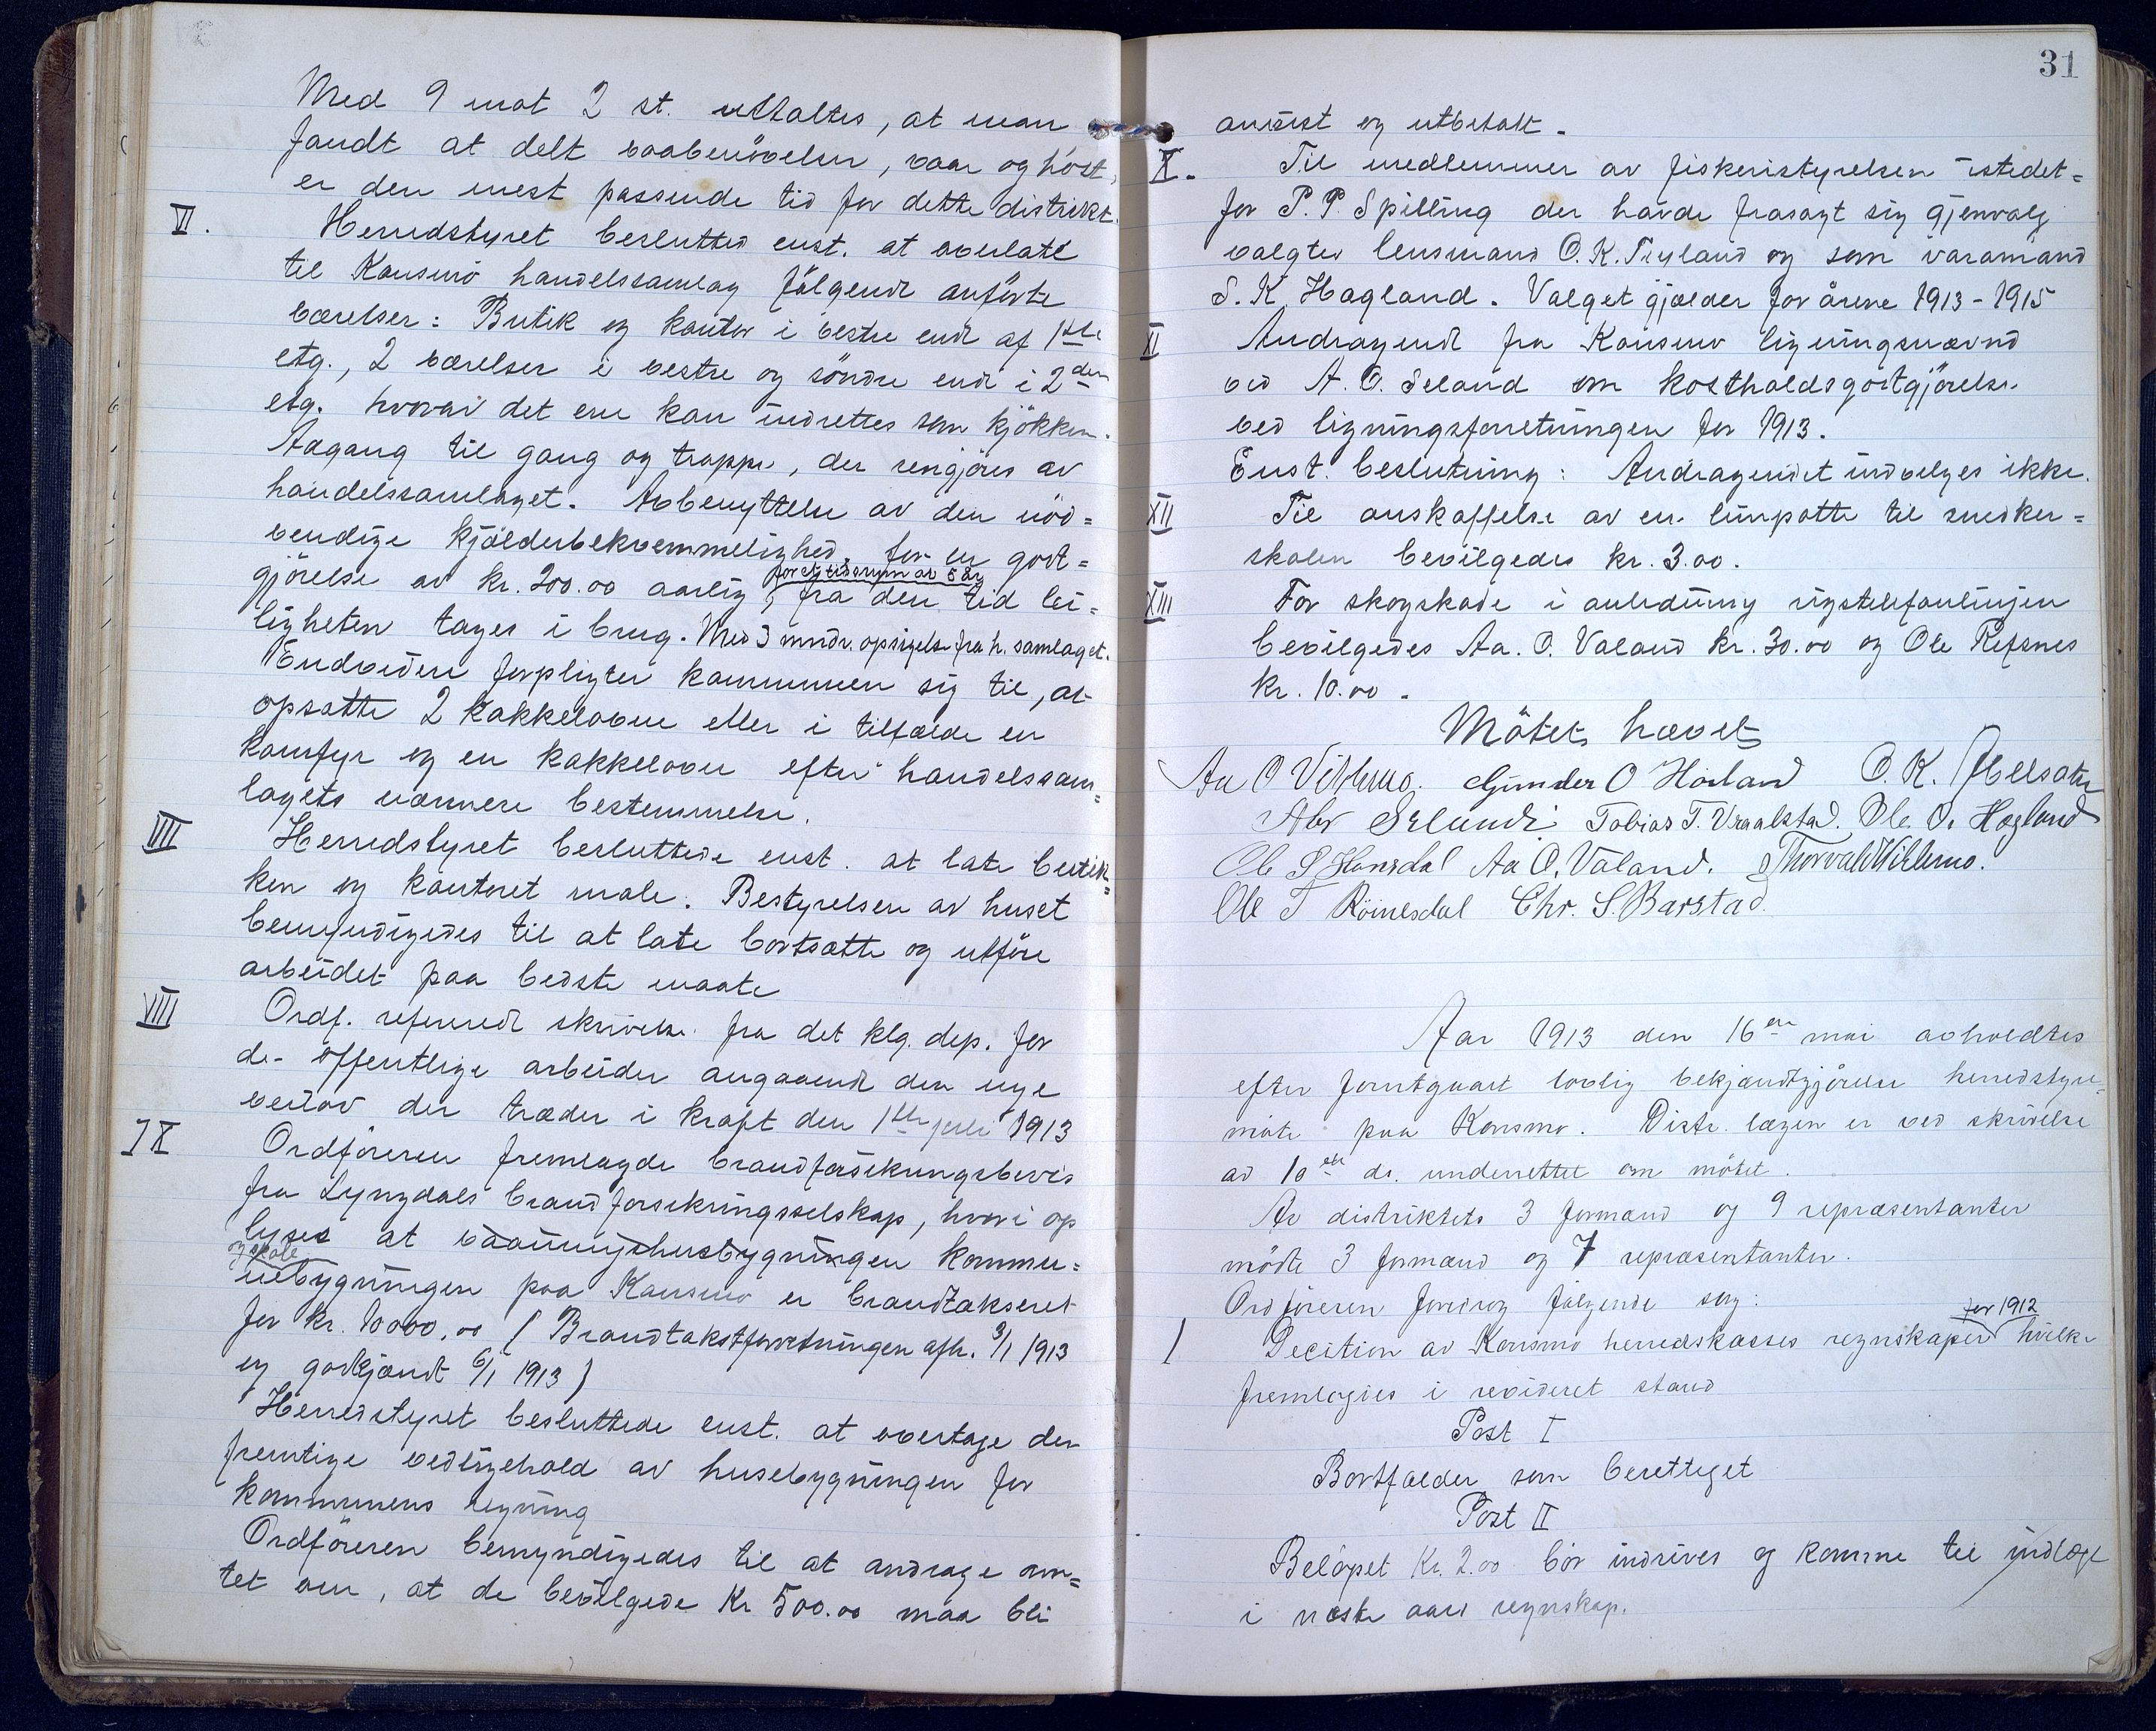 Med 9 mot 2 st. uttaltes, at man
fandt at delt vaabenövelser, vaar og höst,
er den mest passende tid for dette distrikt.
VI. Herredstyret besluttet enst. at overlate
til Konsmo handelssamlag fölgende anförte
værelser: Butik og kontor i vestre ende af 1ste
etg., 2 værelser i vestre og söndre ende i 2den
etg. hvorav det ene kan indrettes som kjökken.
Adgang til gang og trappe, der rengjöres av
handelssamlaget. Avbenyttelse av den nöd=
vendige kjælderbekvemmelighed, for en godt=
for et tidsrum av 5 år
gjörelse av kr. 200.00 aarlig, fra den tid lei=
ligheten tages i brug. Med 3 mndr. opsigelse fra h. samlaget.
Endvidere forpligter kommunen sig til, at
opsætte 2 kakkelovne eller i tilfælde en
komfyr og en kakkelovn efter handelssam=
lagets nærmere bestemmelse.
VII Herredstyret besluttede enst. at late butik=
ken og kontoret male. Bestyrelsen av huset
bemyndigedes til at late bortsætte og utföre
arbeidet paa bedste maate
VIII Ordf. refererede skrivelse fra det klg. dep. for
de offentlige arbeider angaaende den nye
veilov der træder i kraft den 1ste juli 1913
IX Ordföreren fremlagde brandforsikringsbevis
fra Lyngdals brandforsikringsselskap, hvori op
lyses at vaaningshusbygningen kommu=
og skole
nebygningen paa Konsmo er brandtakseret
for kr. 10000,00 (Brandtakstforretningen afh. 3/1 1913
og godkjændt 6/1 1913)
Herredstyret besluttede enst. at overtage den
fremtige vedligehold av husebygningen for
kommunens regning
Ordföreren bemyndigedes til at andrage am=
tet om, at de bevilgede Kr 500.00 maa bli
31
anvist og utbetalt.
X. Til medlemmer av fiskeristyrelsen istedet=
for P. P. Spilling der havde frasagt sig gjenvalg
valgtes lensmand O. K. Tryland og som varamand
S. K. Hagland. Valget gjælder for årene 1913-1915
XI Andragende fra Konsmo ligningsnævnd
ved A. O. Seland om kostholdsgodtgjörelse
ved ligningsforretningen for 1913.
Enst. beslutning: Andragendet indvilges ikke.
XII Til anskaffelse av en limpotte til snedker=
skolen bevilgedes kr. 3.00.
XIII For skogskade i anledning rigstelefonlinjen
bevilgedes Aa. O. Valand kr. 30.00 og Ole Refsnes
kr. 10.00.
Mötet hævet
Aa O Viblemo. Gunder O Hörland O. K.
Abr Selund Tobias T. Vraalstad. Ole O. Hogland
Ole S Homsdal Aa O. Valand. Thorvald Viblemo.
Ole T Röinesdal Chr. S. Barstad
Aar 1913 den 16de mai avholdtes
efter forutgaaet lovlig bekjændtgjörelse herredstyre=
möte paa Konsmo. Distr. lægen er ved skrivelse
av 10de ds. underrettet om mötet.
Av distriktets 3 formænd og 9 repræsentanter
mödte 3 formænd og 7 repræsentanter.
Ordföreren foredrog fölgende sag:
for 1912
I Decition av Konsmo herredskasses regnskaper hvilke
fremlagdes i revideret stand
Post I
Bortfalder som berettiget
Post II
Belöpet Kr. 2.00 bör indrives og komme til indtægt
i næste aars regnskap.